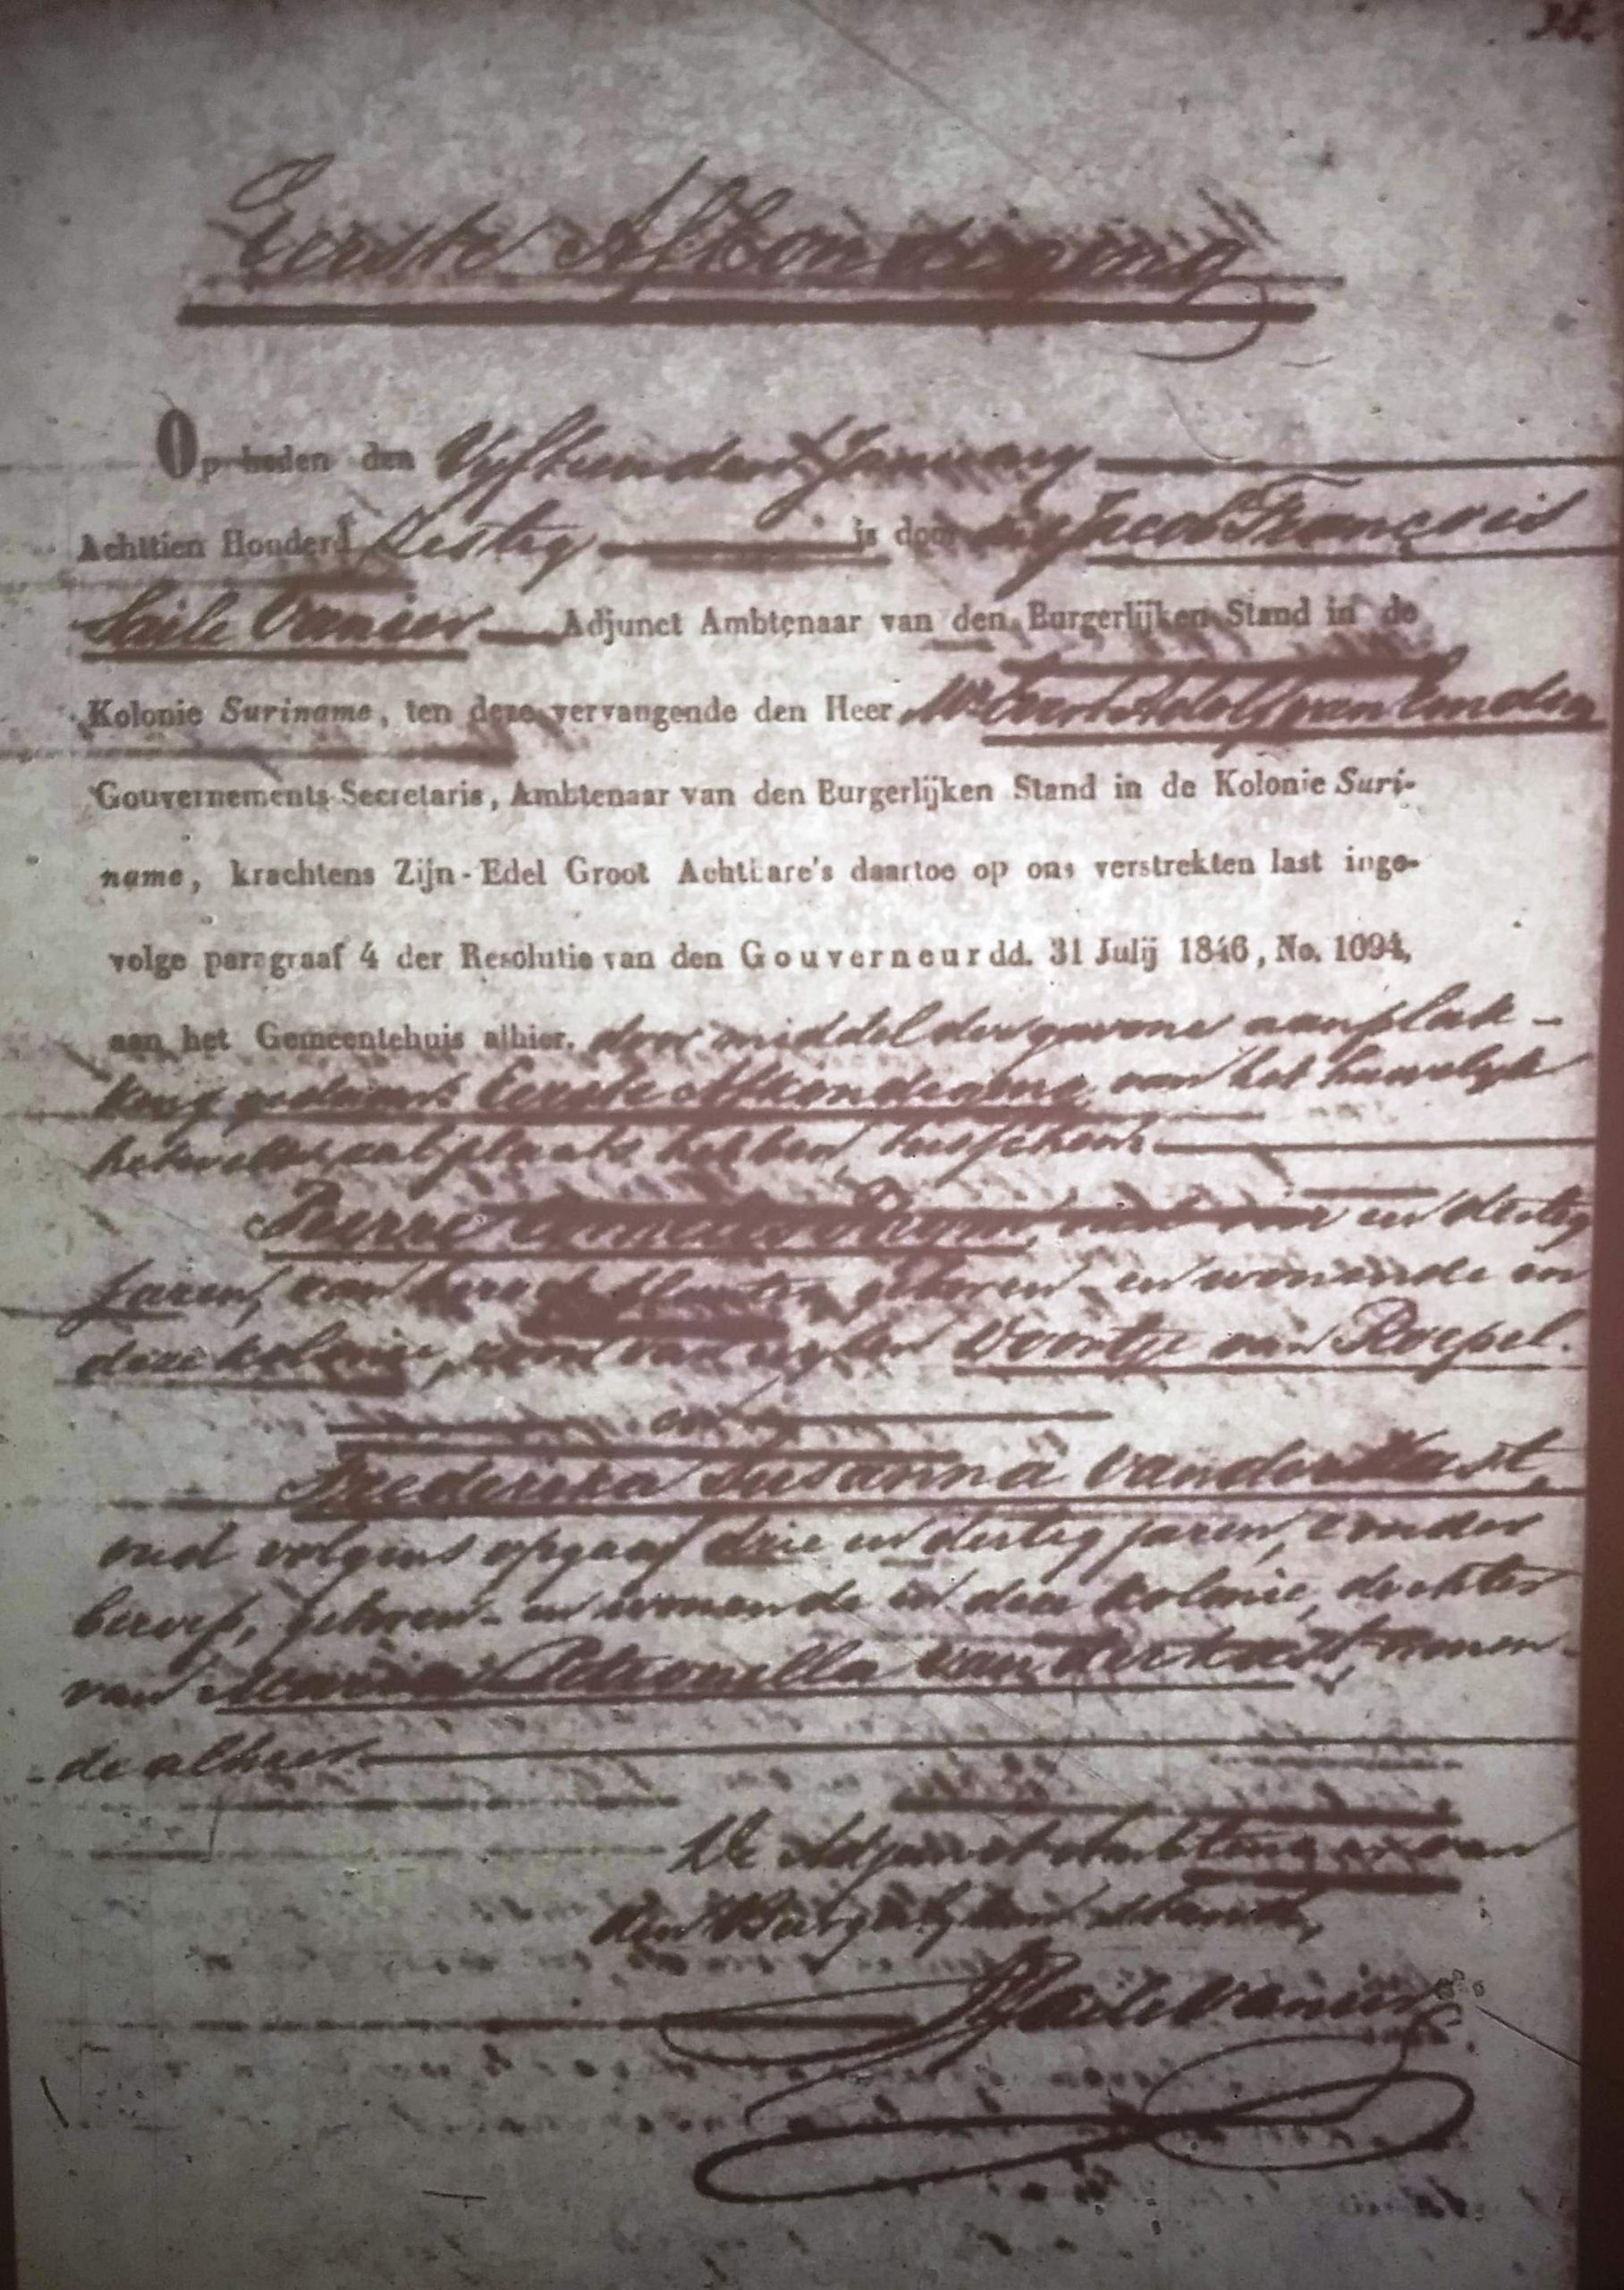 Eerste Afkondiging
Op heden den Vyftienden January
Achttien Honderd Zestig is door my Jacob François
Saile Vanier Adjunct Ambtenaar van den Burgerlijken Stand in de
Kolonie Suriname, ten deze vervangende den Heer Mr Evert Adolf van Emden
Gouvernements-Secretaris, Ambtenaar van den Burgerlijken Stand in de Kolonie Suri-
name, krachtens Zijn-Edel Groot Achtbare's daartoe op ons verstrekten last inge-
volge paragraaf 4 der Resolutie van den Gouverneur dd. 31 Julij 1846, No. 1094,
aan het Gemeentehuis alhier. door middel der gewone aanplak-
king gedaan de Eerste Afkondiging van het huwelyk
hetwelk zal plaats hebben tusschen
Pierre oud vier en dertig
jaren, van beroep geboren- en wonende in
deze kolonie, zoon van wylen Woortje van Roepel.
en
Frederika Susanna van der Kast,
oud volgens opgaaf drie en dertig jaren, zonder
beroep, geboren- en wonende in deze kolonie, dochter
van Petronella van der Kast, wonen-
de alhier
De Adjunct Ambtenaar van
den Burgerlyken Stand,
Saile Vanier